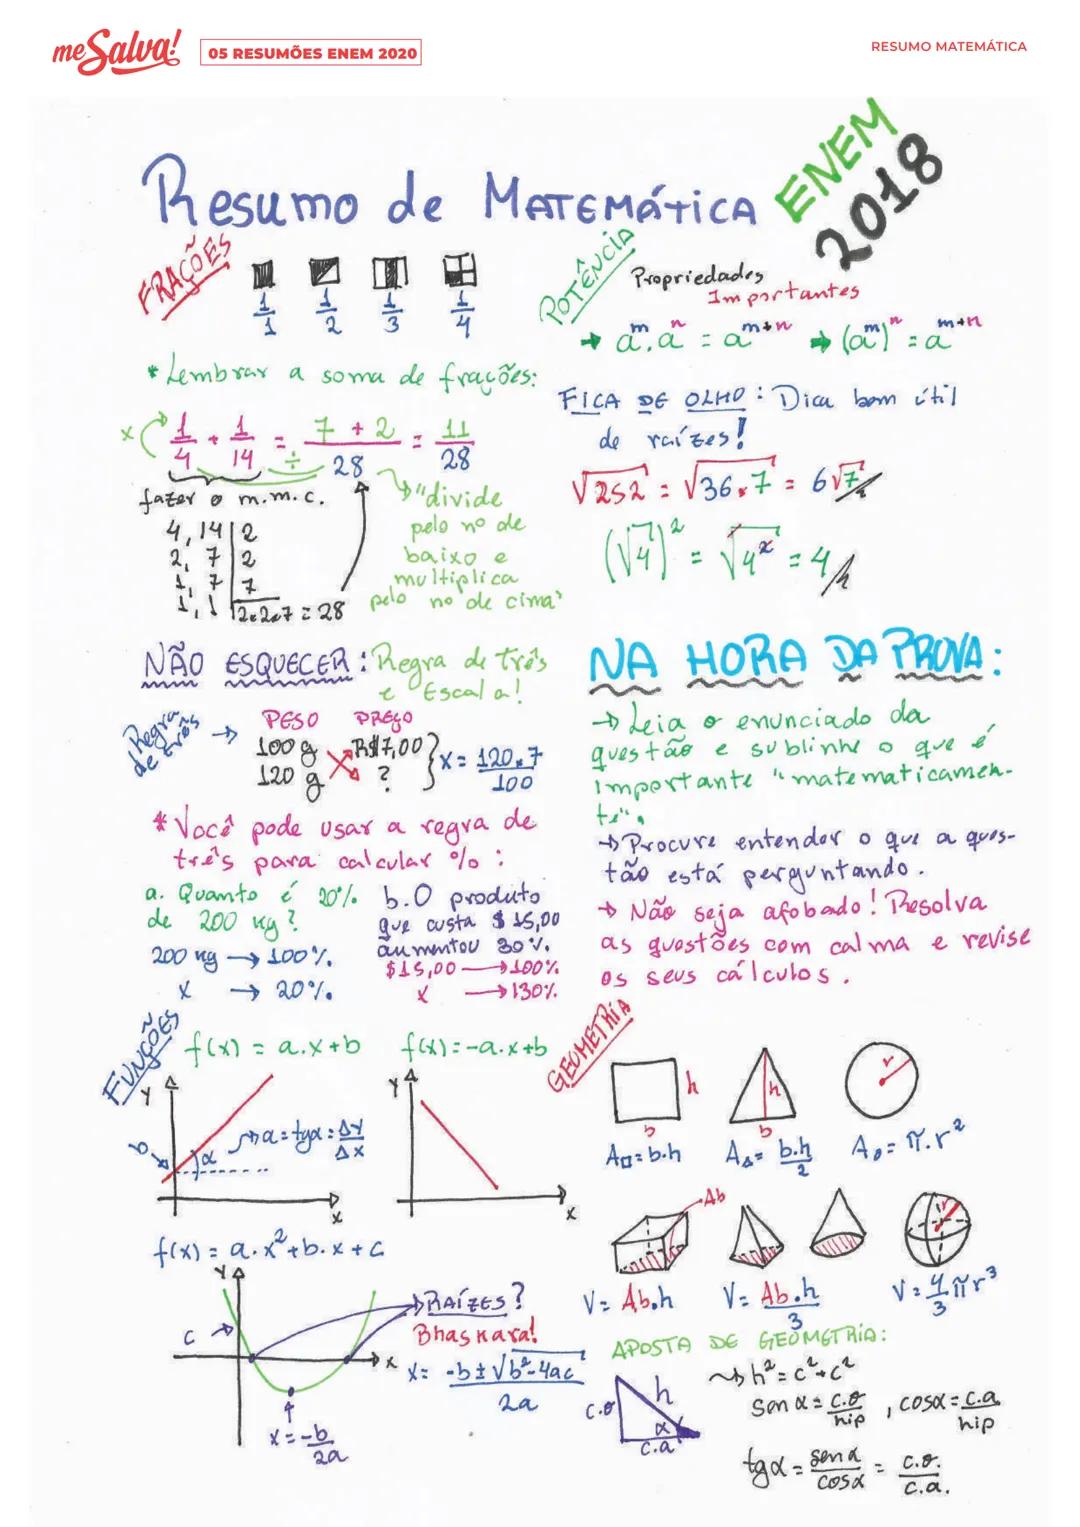 meSalva!
05 RESUMÕES ENEM 2020
RESUMO MATEMÁTICA
Resumo de MATEMÁTICA
ENEM
2018
FRAÇÕES
1/1 1/2 1/3 1/4
* Lembrar a soma de frações:
x 1/4 + 1/14 = 7 + 2 / 28 = 11/28
÷
fazer o m.m.c.
4, 14 | 2
2, 7 | 2
1, 7 | 7
1, 1 | 2.2.7 = 28
"divide
pelo nº de
baixo e
multiplica
pelo nº de cima"
POTÊNCIA
Propriedades
Importantes
→ a^m . a^n = a^m+n → (a^m)^n = a^m+n
FICA DE OLHO: Dica bem útil
de raízes!
√252 = √36.7 = 6√7
(√4)² = √4² = 4
NÃO ESQUECER: Regra de três
e Escala!
Regra
de três →
PESO PREÇO
100 g R$7,00
120 g ?
x = 120.7/100
* Você pode usar a regra de
três para calcular %:
a. Quanto é 20%
de 200 kg?
200 kg → 100%.
x → 20%.
b. O produto
que custa $ 15,00
aumentou 30%.
$15,00 → 100%
x → 130%
NA HORA DA PROVA:
→ Leia o enunciado da
questão e sublinhe o que é
importante "matematicamen-
te".
→ Procure entender o que a ques-
tão está perguntando.
→ Não seja afobado! Resolva
as questões com calma e revise
os seus cálculos.
FUNÇÕES
f(x) = a.x+b f(x) = -a.x+b
y
b
α
a = tgα = Δy/Δx
x
y
x
f(x) = a.x²+b.x+c
y
c
x
x = -b/2a
RAÍZES?
Bhaskara!
x = -b±√b²-4ac / 2a
GEOMETRIA
h
b
h
b
r
A□ = b.h A△ = b.h/2 A○ = π.r²
Ab
r
V = Ab.h V = Ab.h/3 V = 4/3 πr³
APOSTA DE GEOMETRIA:
c.o
h
α
c.a
h² = c²+c²
sen α = c.o/hip , cosα = c.a/hip
tgα = senα/cosα = c.o./c.a.